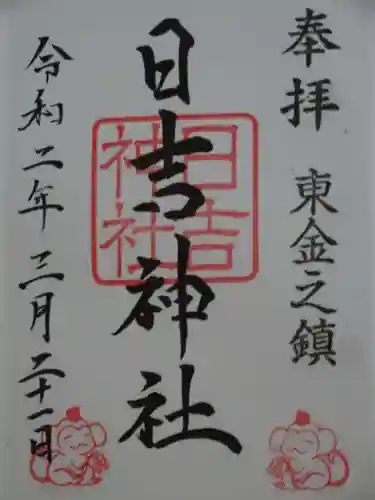 奉拝
東金之鎮
日吉神社
日吉
神社
令和二年三月二十一日